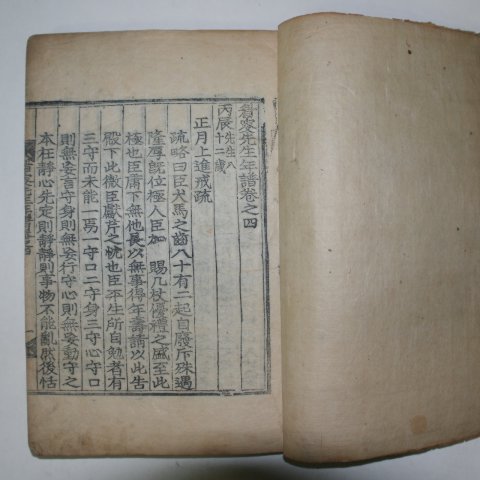 眉叟先生年譜卷之四
丙辰先生八十二歲
正月上進戒疏
疏略曰臣犬馬之齒八十有二起自廢斥殊遇
隆厚旣位極人臣加 賜几杖優禮之盛至此
極也臣庸下無他長以無事得年壽請以此告
殿下此微臣獻芹之忱也臣本生所自勉者有
三守而未能一焉一守口二守身三守心守口
則無妄言守身則無妄行守心則無妄動守之
本在靜心先定則靜靜則事物不能亂然後恬